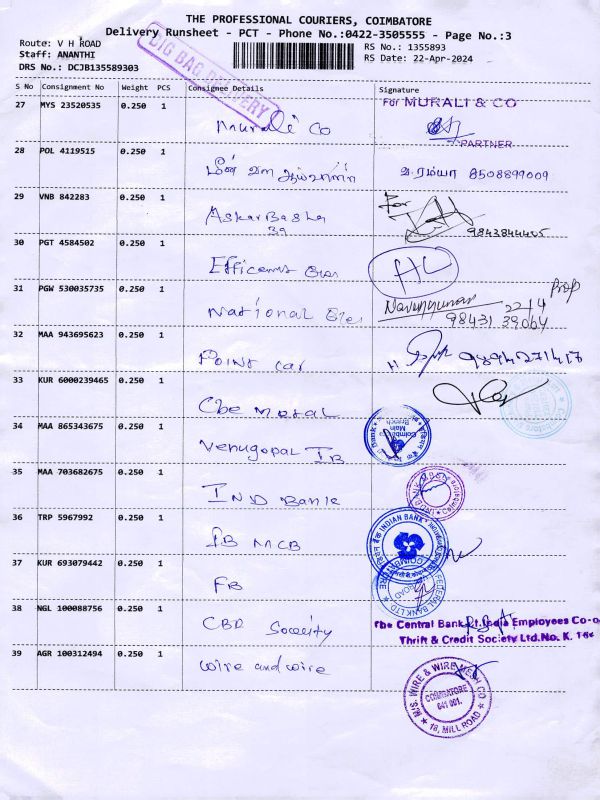 THE PROFESSIONAL COURIERS, COIMBATORE
Delivery Runsheet - PCT - Phone No.:0422-3505555 - Page No.:3
Route: V H ROAD
Staff: ANANTHI
DRS No.: DCJB135589303
RS No.: 1355893
RS Date: 22-Apr-2024
BIG BAG DELIVERY
S No Consignment No Weight PCS Consignee Details Signature
27 MYS 23520535 0.250 1 Murali Co
For MURALI & CO
PARTNER
28 POL 4119515 0.250 1
வ.ரம்யா 8508899009
29 VNB 842283 0.250 1 Askar Basha
For
9843844405
30 PGT 4584502 0.250 1
31 PGW 530035735 0.250 1 National Ele
22/4
98431 39064
32 MAA 943695623 0.250 1 Point car
33 KUR 6000239465 0.250 1 Cbe Metal
34 MAA 865343675 0.250 1 Venugopal IB
35 MAA 703682675 0.250 1 IND Bank
36 TRP 5967992 0.250 1 IB MCB
INDIAN BANK
37 KUR 693079442 0.250 1 FB
FEDERAL BANK LTD
38 NGL 100088756 0.250 1 CBD Society
The Central Bank of India Employees Co-o
Thrift & Credit Society Ltd. No. K. 16
39 AGR 100312494 0.250 1 wire and wire
M/S. WIRE & WIRE MESH CO
COIMBATORE
641 001.
18, MILL ROAD